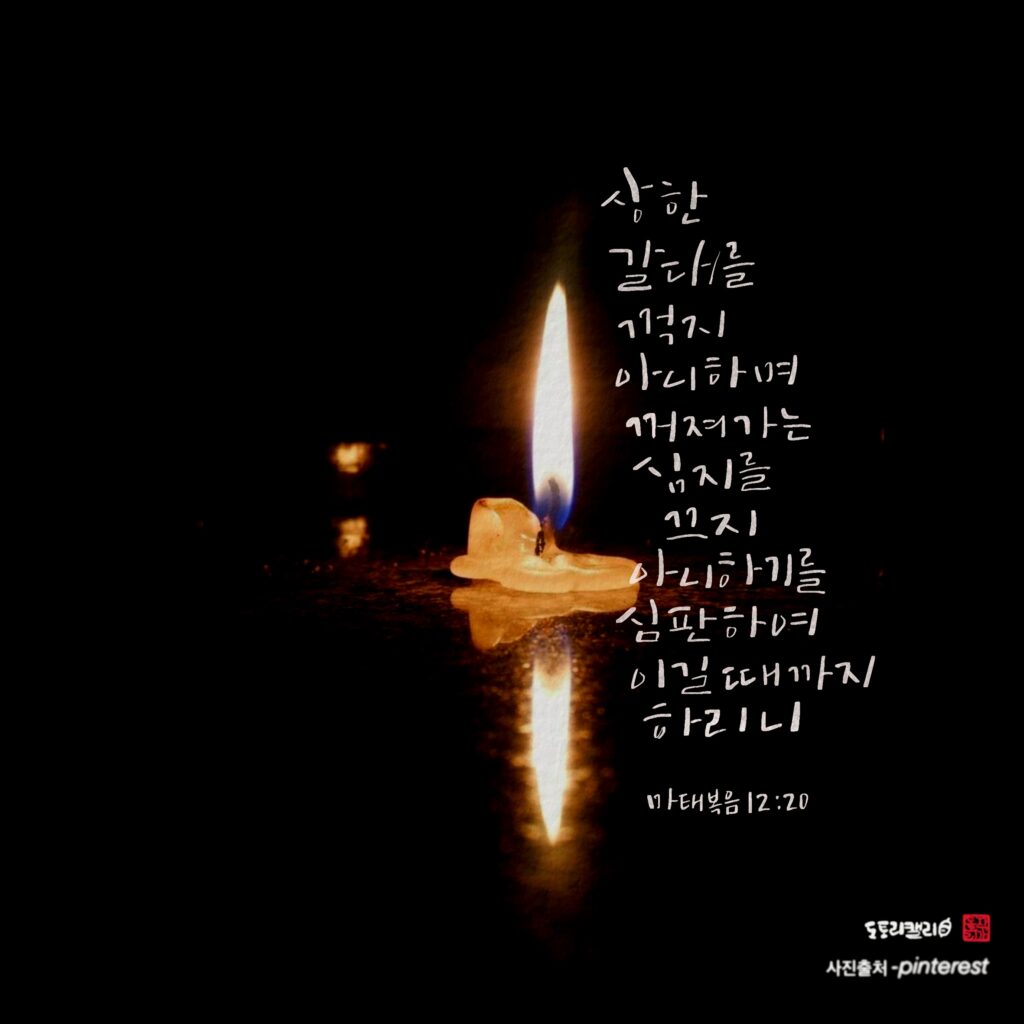 상한
갈대를
꺽지
아니하며
꺼져가는
심지를
끄지
아니하기를
심판하여
이길때까지
하리니
마태복음 12:20
도토리캘리
사진출처-pinterest